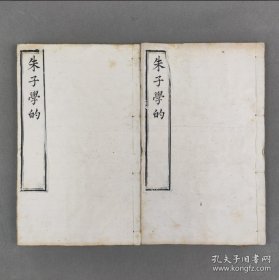 朱子學的
朱子學的
孔夫子旧书网